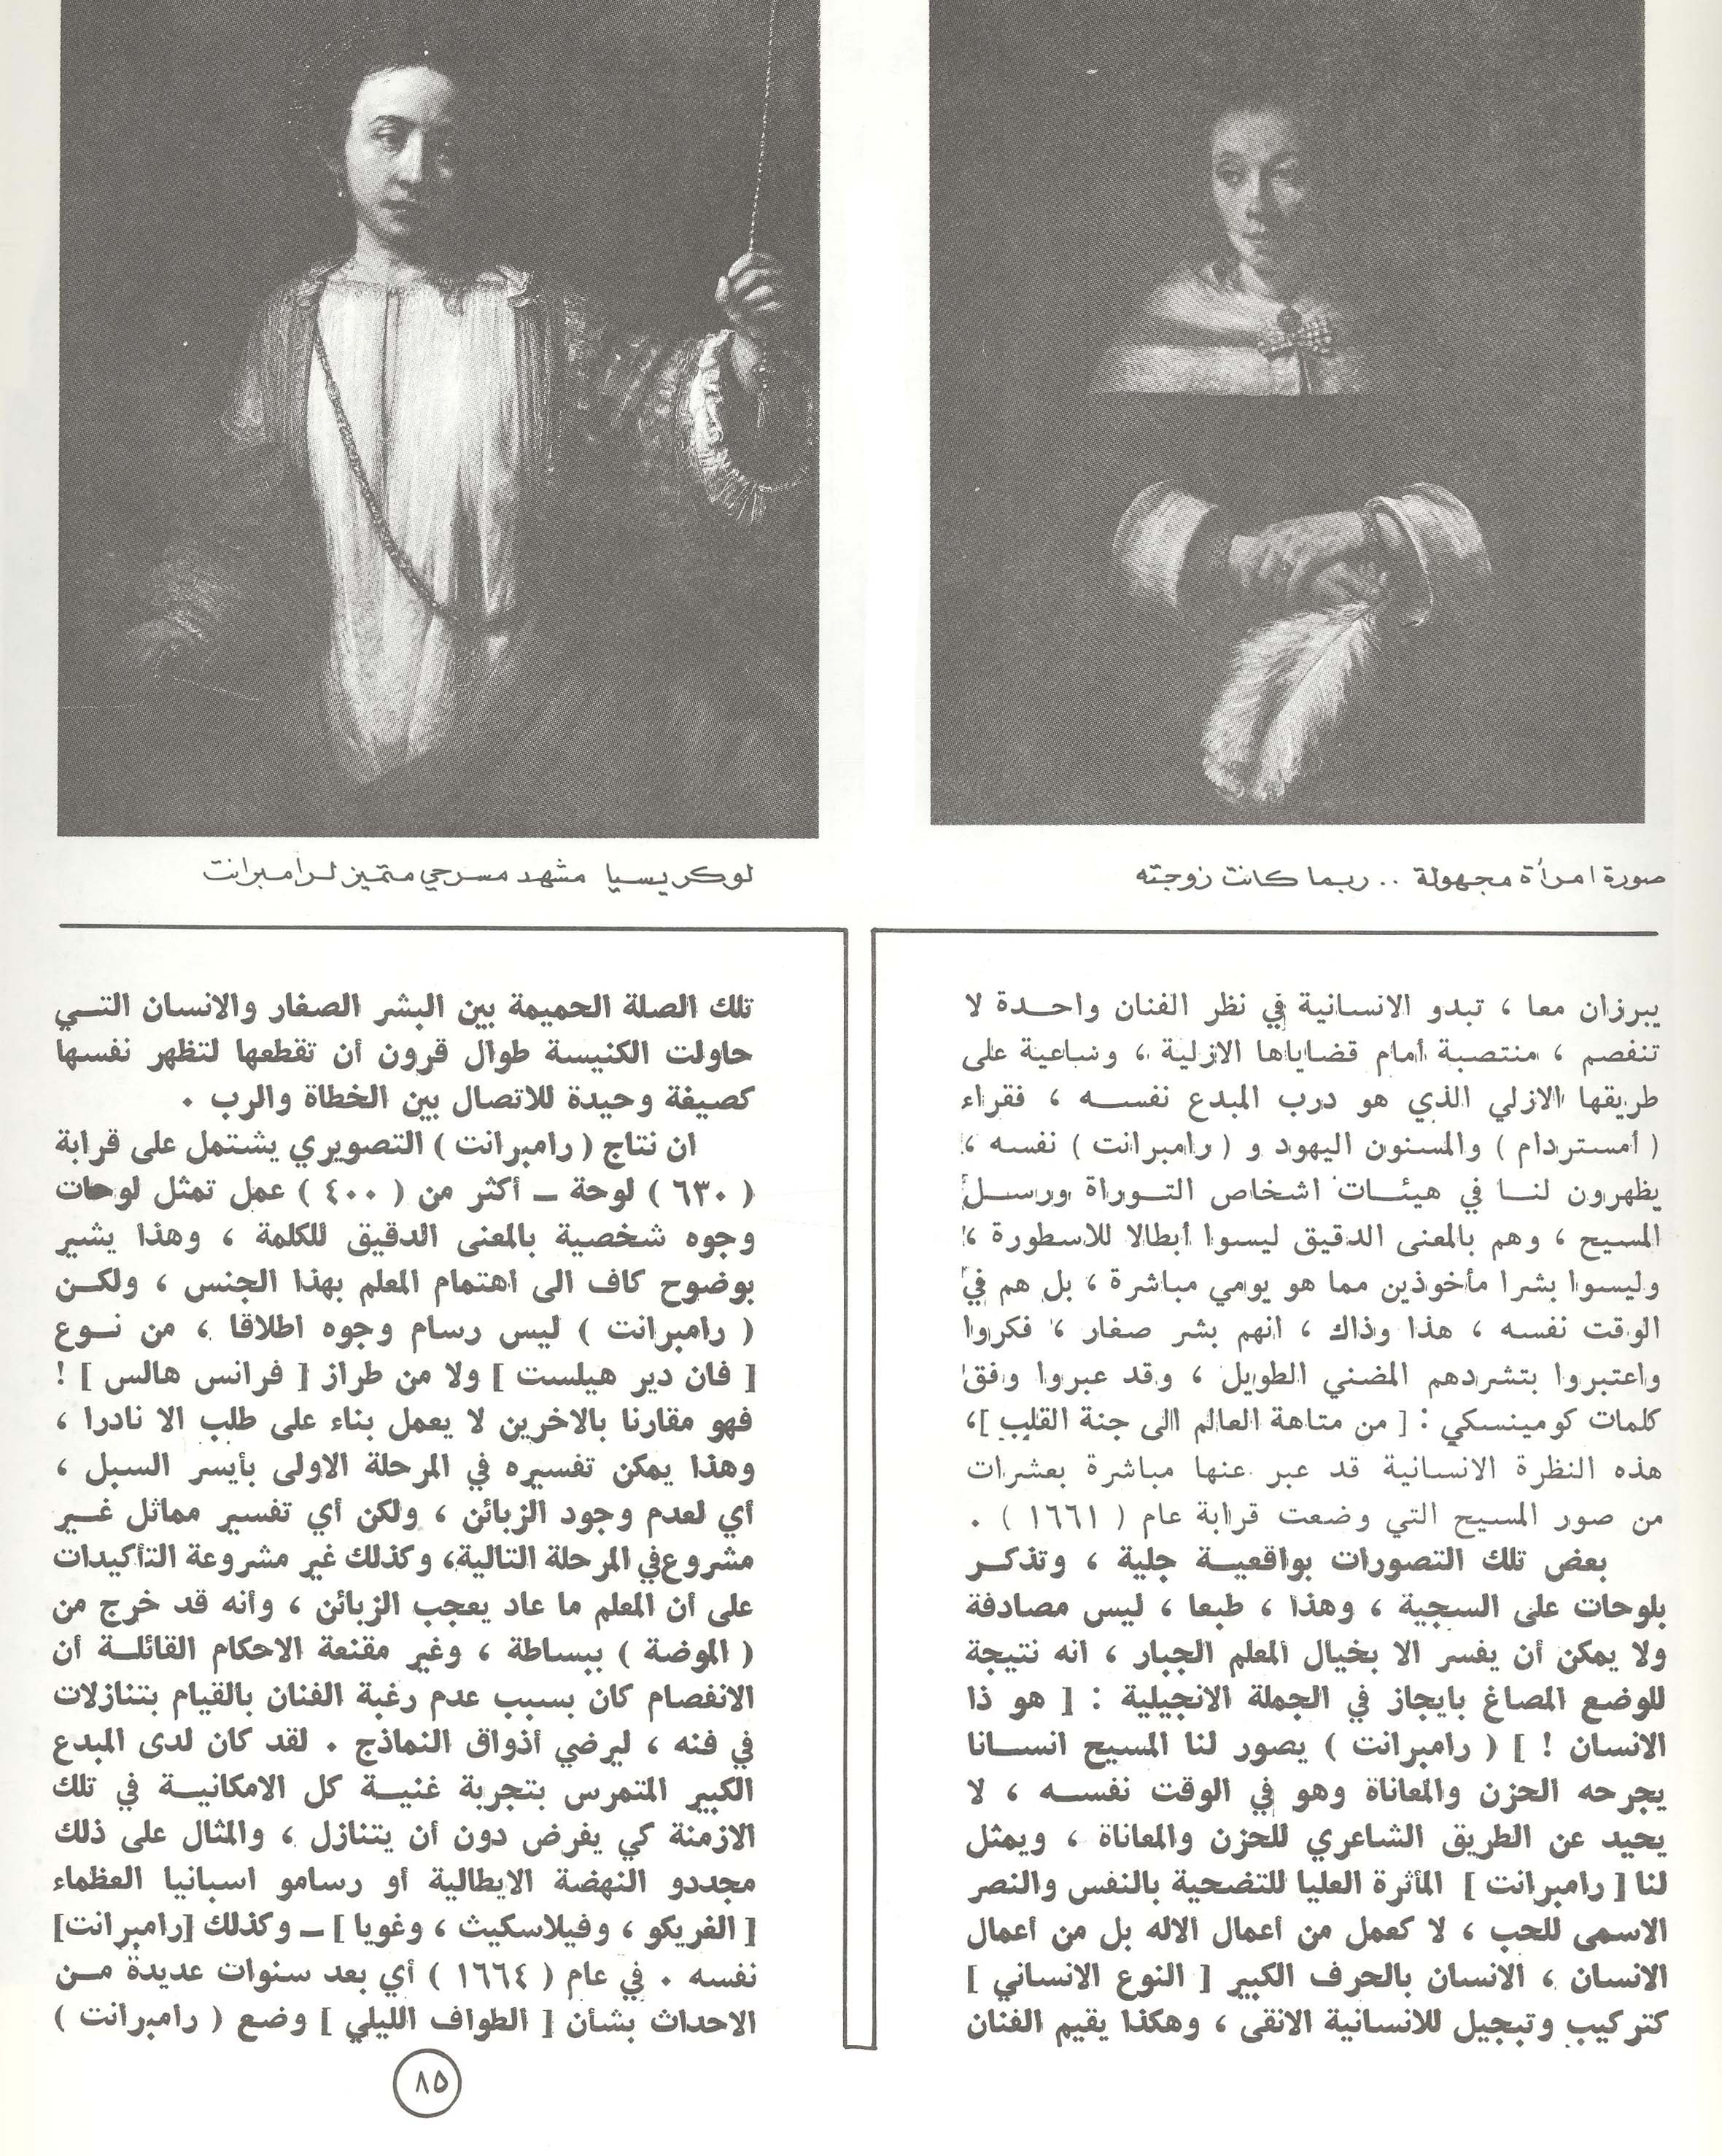 صورة امرأة مجهولة .. ربما كانت زوجته
لوكريسيا مشهد مسرحي متميز لرامبرانت
يبرزان معا ، تبدو الانسانية في نظر الفنان واحـدة لا
تنفصم ، منتصبة أمام قضاياها الازلية ، وساعية على
طريقها الازلي الذي هو درب المبدع نفســه ، فقراء
( أمستردام ) والمسنون اليهود و ( رامبرانت ) نفسه ،
يظهرون لنـا في هيئـات اشخاص التـوراة ورسـل
المسيح ، وهم بالمعنى الدقيق ليسوا أبطالا للاسطورة ،
وليسوا بشرا مأخوذين مما هو يومي مباشرة ، بل هم في
الوقت نفسه ، هذا وذاك ، انهم بشر صغار ، فكروا
واعتبروا بتشردهم المضني الطويل ، وقد عبروا وفق
كلمات كومينسكي : [ من متاهة العالم الى جنة القلب ]،
هذه النظرة الانسانية قد عبر عنها مباشرة بعشرات
من صور المسيح التي وضعت قرابة عام ( ١٦٦١ ) .
بعض تلك التصورات بواقعيـة جلية ، وتذكـر
بلوحات على السجية ، وهذا ، طبعا ، ليس مصادفة
ولا يمكن أن يفسر الا بخيال المعلم الجبار ، انه نتيجة
للوضع المصاغ بايجاز في الجملة الانجيلية : [ هو ذا
الانسان ! ] ( رامبرانت ) يصور لنا المسيح انسـانا
يجرحه الحزن والمعاناة وهو في الوقت نفســه ، لا
يحيد عن الطريق الشاعري للحزن والمعاناة ، ويمثل
لنا [ رامبرانت ] المأثرة العليا للتضحية بالنفس والنصر
الاسمى للحب ، لا كعمل من أعمال الاله بل من أعمال
الانسان ، الانسان بالحرف الكبير [ النوع الانساني ]
كتركيب وتبجيل للانسانية الانقى ، وهكذا يقيم الفنان
تلك الصلة الحميمة بين البشر الصغار والانسان التـي
حاولت الكنيسة طوال قرون أن تقطعها لتظهر نفسها
كصيغة وحيدة للاتصال بين الخطاة والرب .
ان نتاج ( رامبرانت ) التصويري يشتمل على قرابة
( ٦٣٠ ) لوحة ــ أكثر من ( ٤٠٠ ) عمل تمثل لوحات
وجوه شخصية بالمعنى الدقيق للكلمة ، وهذا يشير
بوضوح كاف الى اهتمام المعلم بهذا الجنس ، ولكـن
( رامبرانت ) ليس رسام وجوه اطلاقا ، من نـوع
[ فان دير هيلست ] ولا من طراز [ فرانس هالس ] !
فهو مقارنا بالاخرين لا يعمل بناء على طلب الا نادرا ،
وهذا يمكن تفسيره في المرحلة الاولى بأيسر السبل ،
أي لعدم وجود الزبائن ، ولكن أي تفسير مماثل غـير
مشروع في المرحلة التالية، وكذلك غير مشروعة التأكيدات
على أن المعلم ما عاد يعجب الزبائن ، وأنه قد خرج من
( الموضة ) ببساطة ، وغير مقنعة الاحكام القائلـة أن
الانفصام كان بسبب عدم رغبة الفنان بالقيام بتنازلات
في فنه ، ليرضي أذواق النماذج . لقد كان لدى المبدع
الكبير المتمرس بتجربة غنيـة كل الامكانيـة في تلك
الازمنة كي يفرض دون أن يتنازل ، والمثال على ذلك
مجددو النهضة الايطالية أو رسامو اسبانيا العظماء
[ الغريكو ، وفيلاسكيث ، وغويا ] ــ وكذلك [رامبرانت]
نفسه . في عام ( ١٦٦٤ ) أي بعد سنوات عديدة مـن
الاحداث بشأن [ الطواف الليلي ] وضع ( رامبرانت )
٨٥